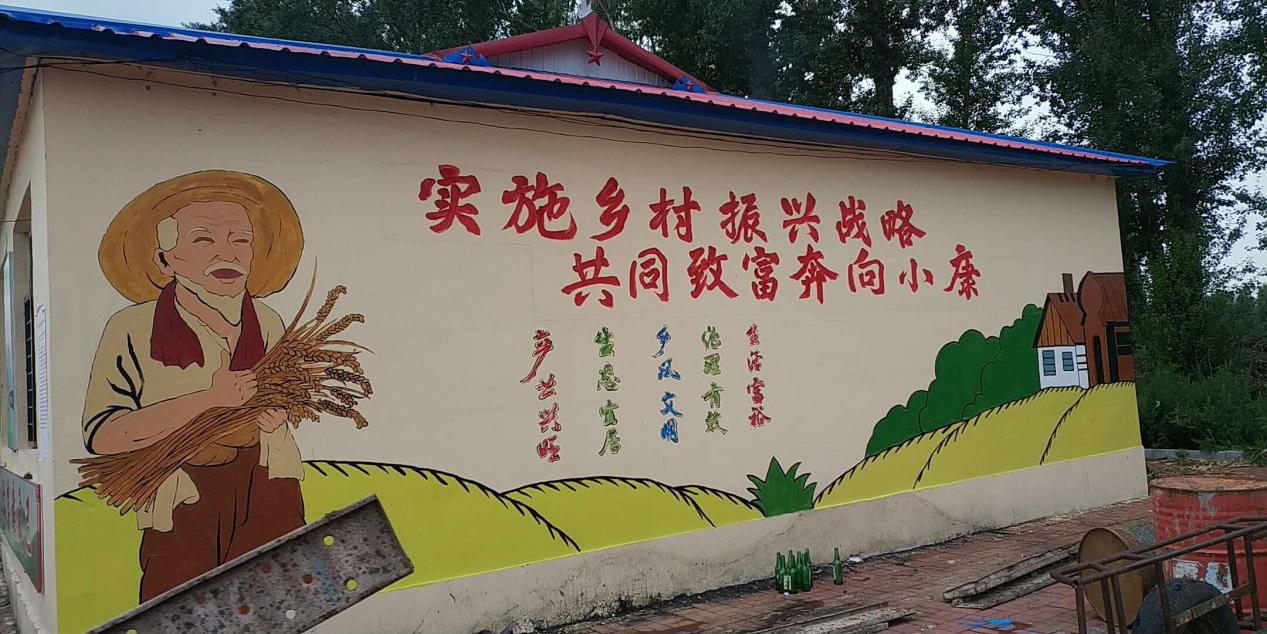 实施乡村振兴战略
共同致富奔向小康
产业兴旺
生态宜居
乡风文明
治理有效
生活富裕